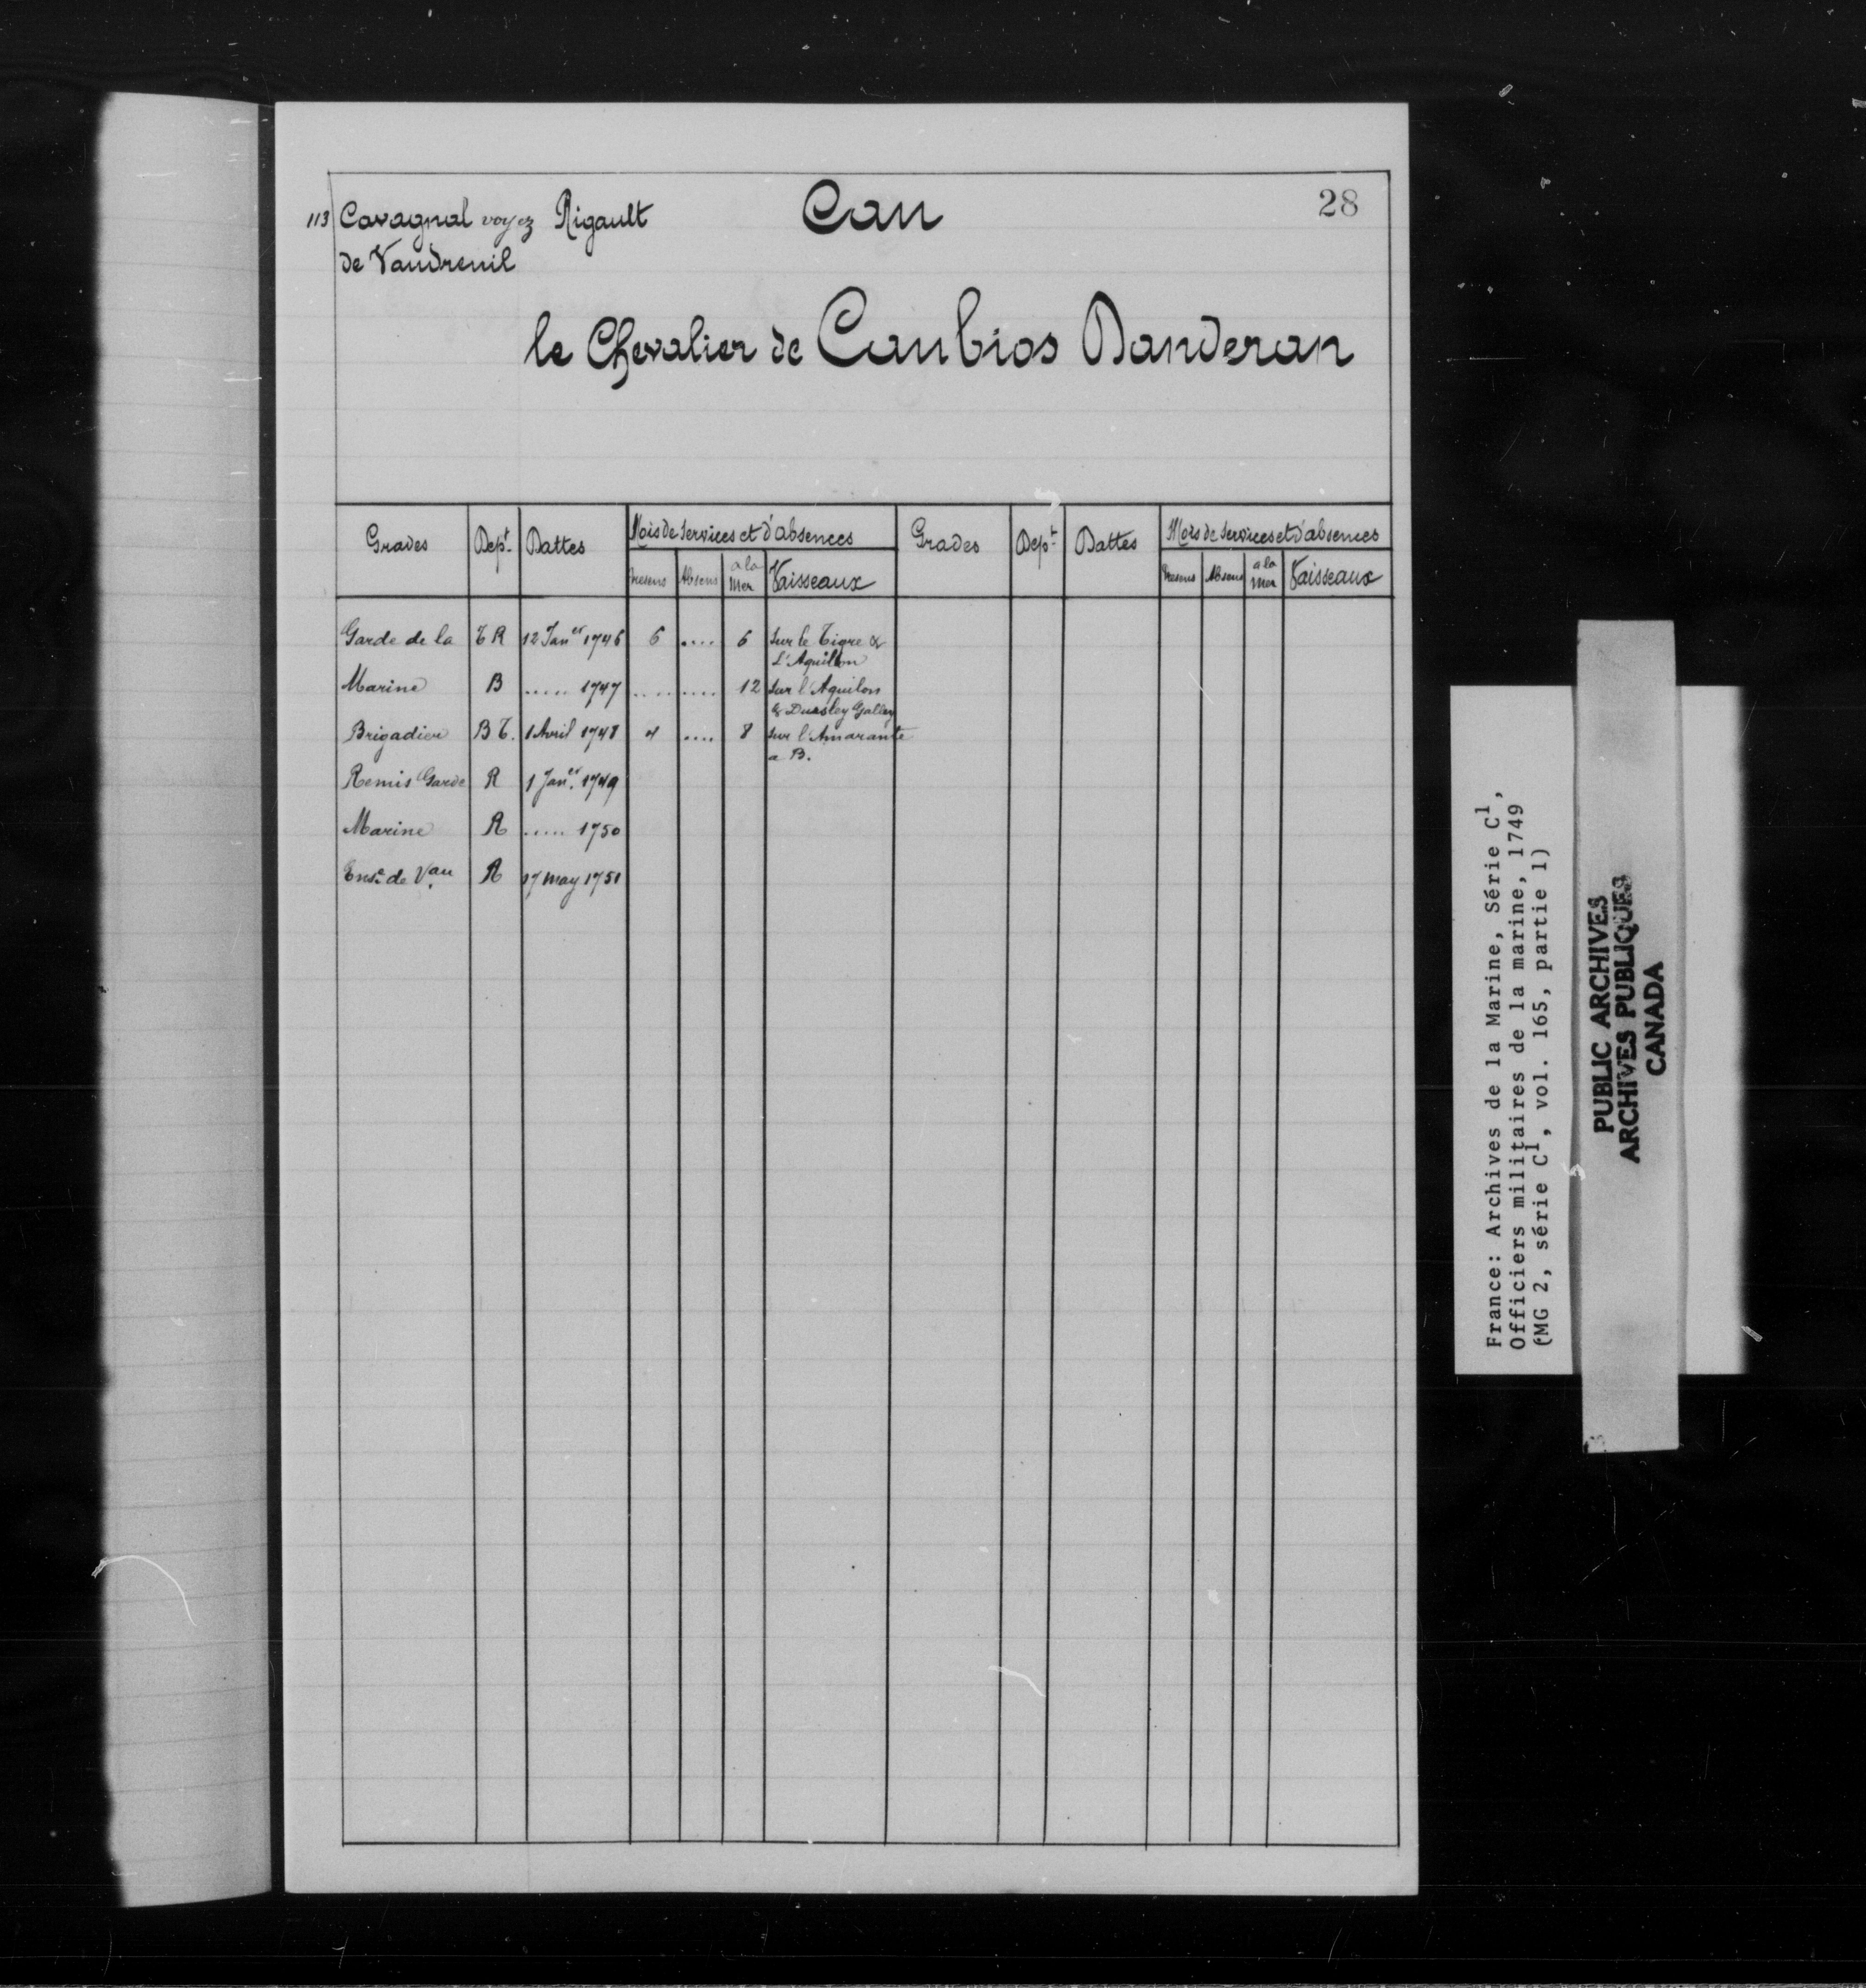 28
Cau
113 Cavagnal voyez Rigault
de Vaudreuil
le Chevalier de Caubios Danderan
Grades Dept. Dattes Mois de Services et d'absences Grades Dept. Dattes Mois de Services et d'absences
Presens Absens a la mer Vaisseaux Presens Absens a la mer Vaisseaux
Garde de la T R 12 Janer 1746 6 .... 6 Sur le Tigre &
L'Aquillon
Marine B ..... 1747 .... .... 12 Sur l'Aquilon
& Dursley Galley
Brigadier B T. 1 Avril 1748 4 .... 8 Sur l'Amarante
a B.
Remis Garde R 1 Janer. 1749
Marine R ..... 1750
Ense. de Vau. R 17 may 1751
France: Archives de la Marine, Série C1,
Officiers militaires de la marine, 1749
(MG 2, série C1, vol. 165, partie 1)
PUBLIC ARCHIVES
ARCHIVES PUBLIQUES
CANADA